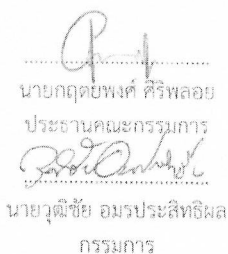 นายกฤตย์พงศ์ ศิริพลอย
ประธานคณะกรรมการ
นายวุฒิชัย อมรประสิทธิผล
กรรมการ